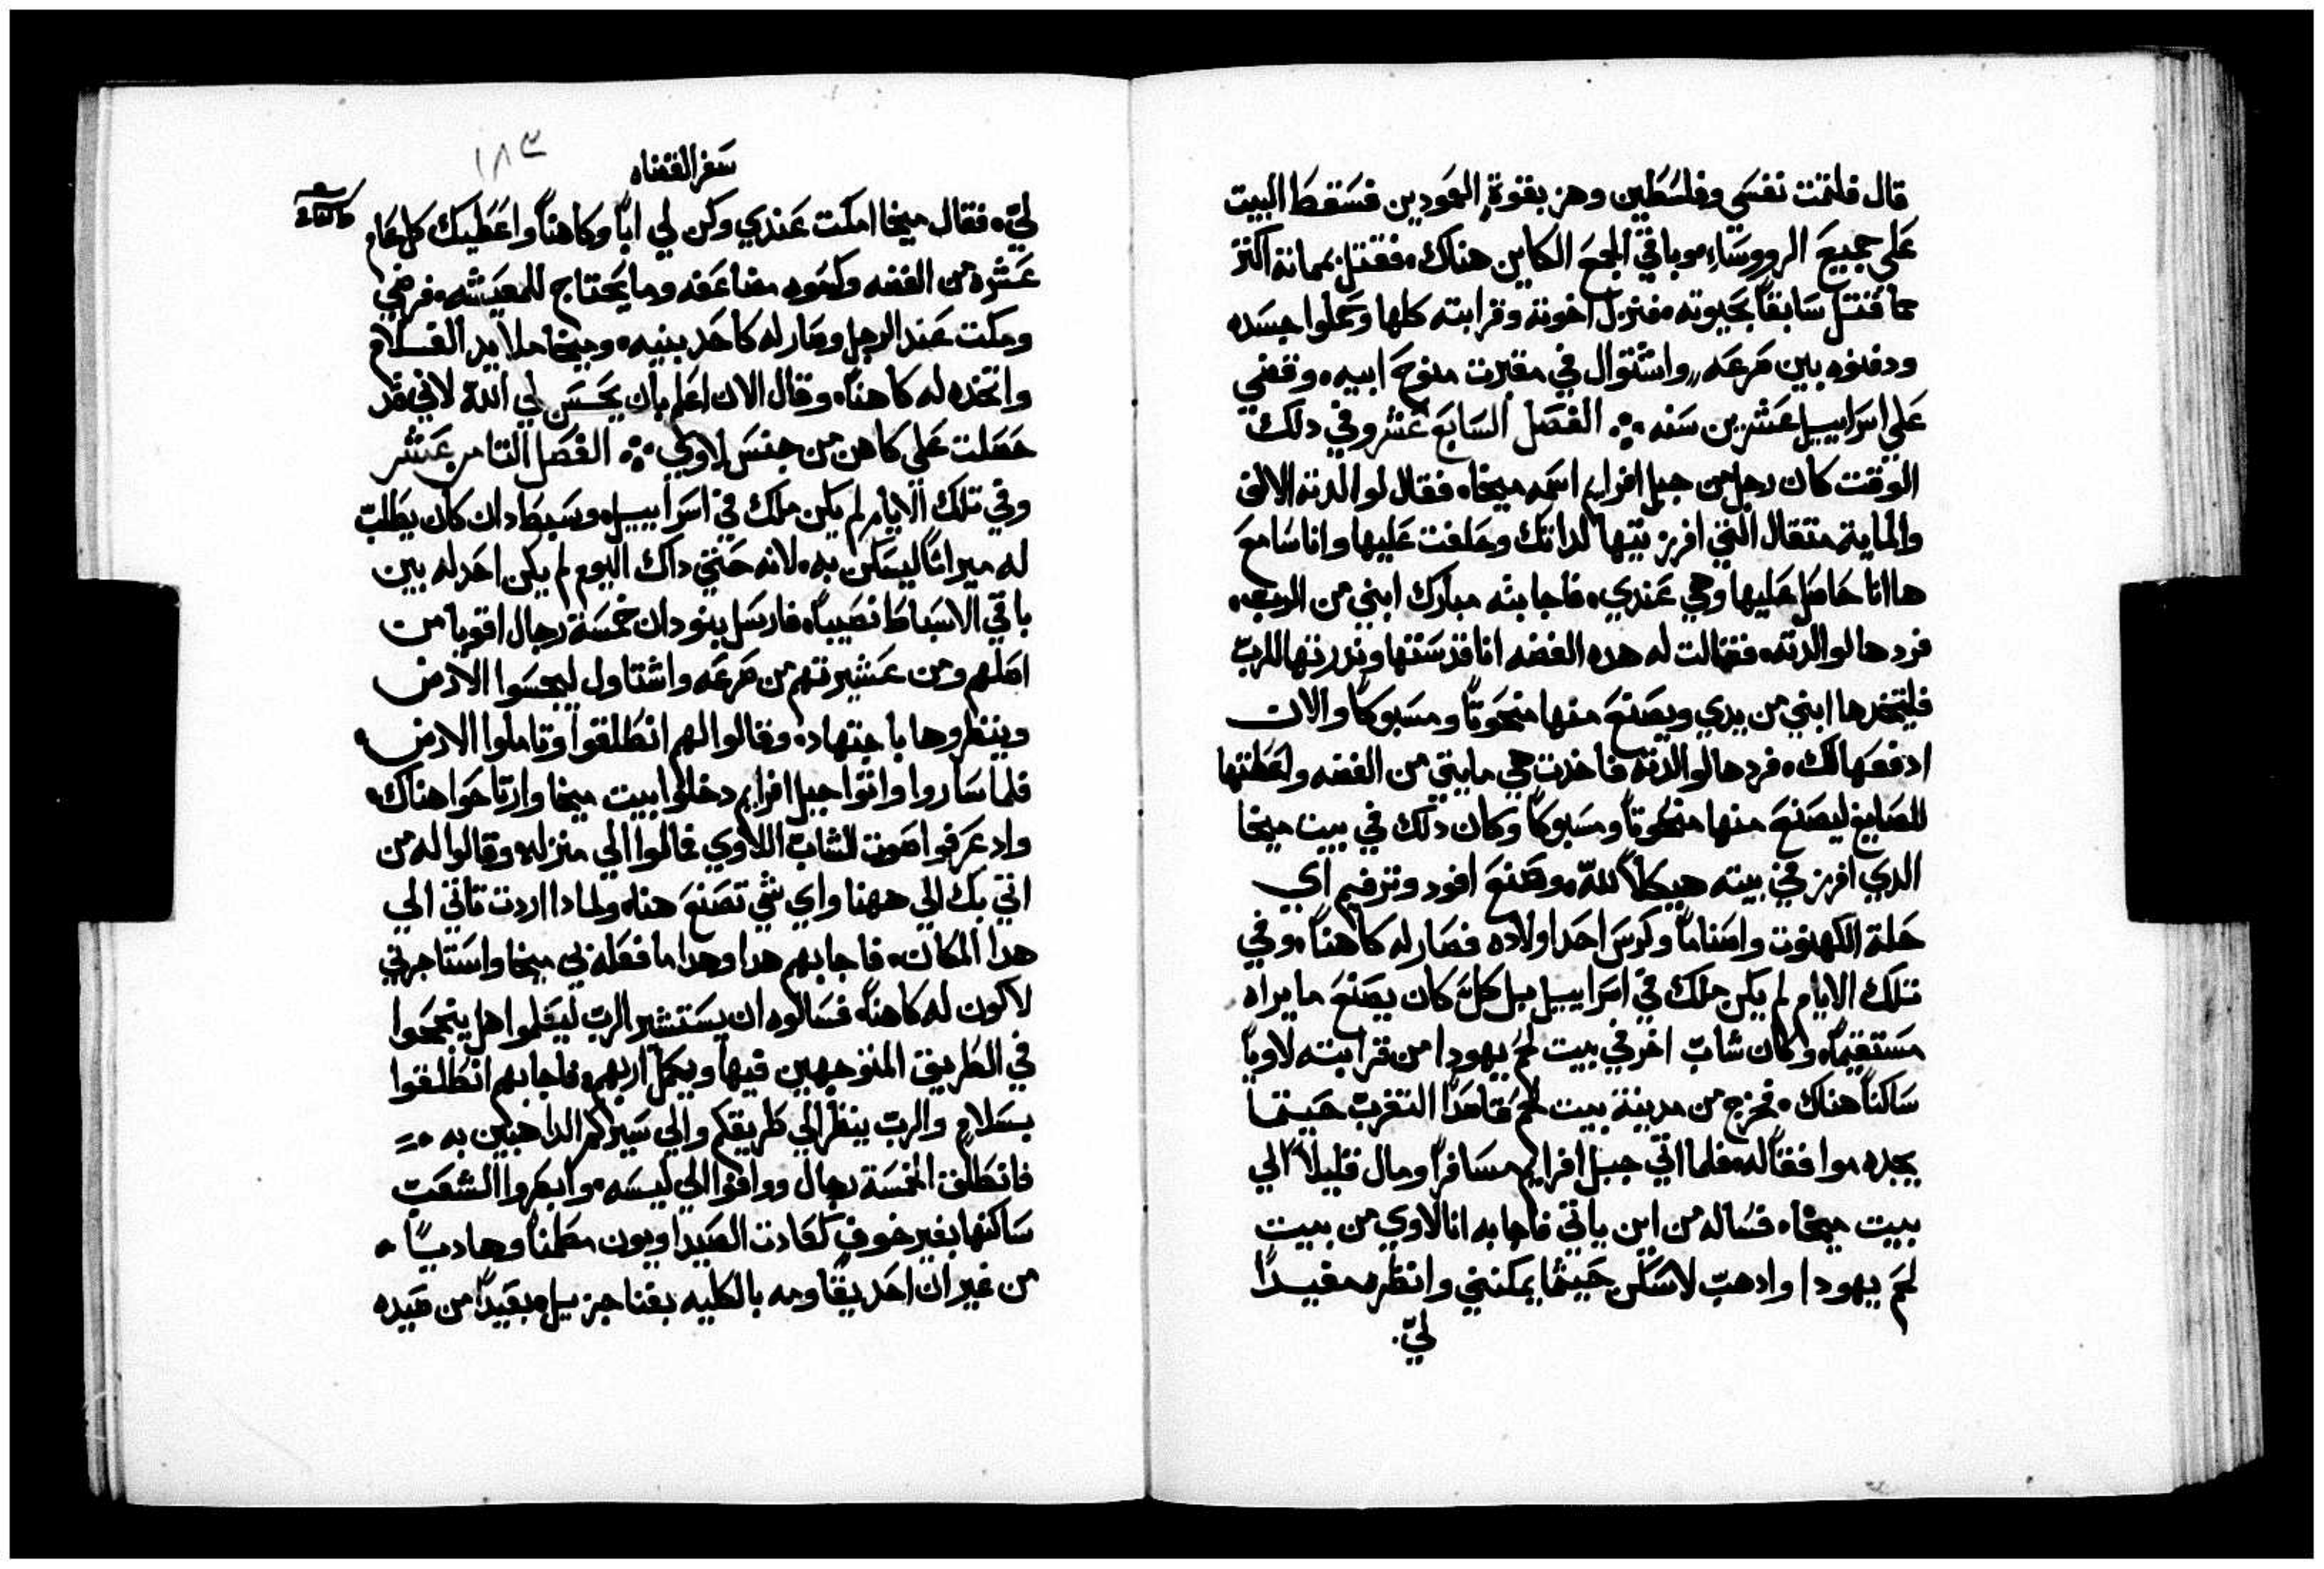 قال فلتمت نفسي وفلسطين وهز بقوة العمودين فسقط البيت
علي جميع الرووساء وباقي الجمع الكاين هناك. فقتل بمماته اكثر
مما قتل سابقاً بحيوته. فنزل اخوته وقرابته كلها وحملوا جسده
ودفنوه بين صرعه واشتوال في مقبرت منوح ابيه. وقضي
علي اسراييل عشرين سنه ❖ الفصل السابع عشر وفي دلك
الوقت كان رجل من جبل افرايم اسمه ميخا. فقال لوالدته الالف
والماية متقال التي افرزيتها لداتك وحلفت عليها وانا سامع
ها انا حاصل عليها وهي عندي. فاجابته مبارك ابني من الرب.
فردها لوالدته. فقالت له هده الفضه انا قدستها وندرتها للرب
فليتخدها ابني من يدي ويصنع منها منحوتاً ومسبوكاً والان
ادفعها لك. فردها لوالدته فاخدت هي مايتي من الفضه واعطتها
للصايغ ليصنع منها منحوتاً ومسبوكاً وكان دلك في بيت ميخا
الدي افرز في بيته هيكلاً لله. وصنع افود وترفيم اي
حلة الكهنوت واصناماً وكرس احد اولاده فصار له كاهناً. وفي
تلك الايام لم يكن ملك في اسراييل بل كل كان يصنع ما يراه
مستقيماً. وكان شاب اخر في بيت لحم يهودا من قرابته لاوياً
ساكناً هناك. فخرج من مدينة بيت لحم قاصداً التغرب حيتما
يجده موافقاً له. فلما اتي جبل افرايم مسافراً ومال قليلاً الي
بيت ميخا. فساله من اين ياتي فاجابه انا لاوي من بيت
لحم يهودا وادهب لاسكن حيثما يمكنني وانظره مفيداً
ليّ.
سفر القضاه
١٨٣
ليّ. فقال ميخا امكت عندي وكن لي اباً وكاهناً واعطيك كل عام
عشره من الفضه وكسوه مضاعفه وما يحتاج للمعيشه. فرضي
ومكت عند الرجل وصار له كاحد بنيه. وميخا ملا يد الغلام
واتخده له كاهناً. وقال الان اعلم بان يحسن لي الله لاني قد
حصلت علي كاهن من جنس لاوي ❖ الفصل التامن عشر
وفي تلك الايام لم يكن ملك في اسراييل. وسبط دان كان يطلب
له ميراتاً ليسكن به. لانه حتي داك اليوم لم يكن احد له بين
باقي الاسباط نصيباً. فارسل بنو دان خمسة رجال اقويا من
اصلهم ومن عشيرتهم من صرعه واشتاول ليجسوا الارض
وينظروها باجتهاد. وقالوا لهم انطلقوا وتاملوا الارض.
فلما ساروا واتوا جبل افرايم دخلوا بيت ميخا وارتاحوا هناك.
واد عرفوا صوت الشاب اللاوي فمالوا الي منزله. وقالوا له من
اتي بك الي ههنا واي شي تصنع هنا. ولمادا اردت تاتي الي
هدا المكان. فاجابهم هدا وهدا ما فعله بي ميخا واستاجرني
لاكون له كاهناً. فسالوه ان يستشير الرب ليعلموا هل ينجحوا
في الطريق المتوجهين فيها ويكمل اربهم. فاجابهم انطلقوا
بسلام والرب ينظر الي طريقكم والي سيركم الداهبين به.
فانطلق الخمسة رجال ووافوا الي ليسه. وابصروا الشعب
ساكنها بغير خوف كعادت الصيداويون مطمناً وهادياً.
من غير ان احد يقاومه بالكليه بغنا جزيل. بعيداً من صيده